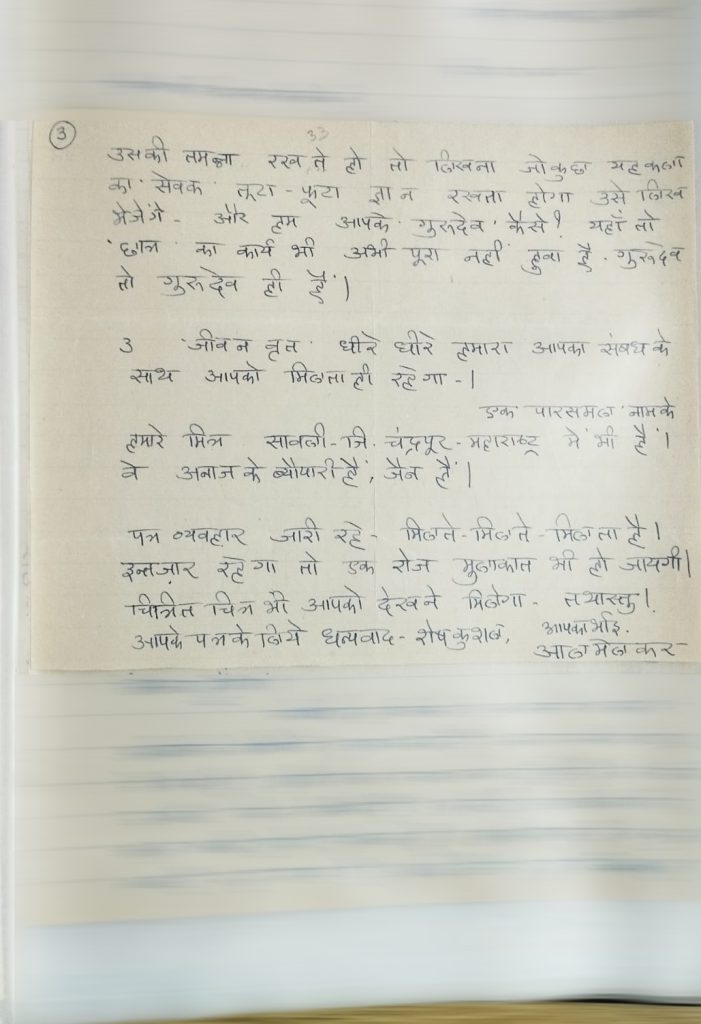 3
33
उसकी तमन्ना रखते हो तो लिखना जो कुछ यह कला
का 'सेवक' तूटा-फूटा ज्ञान रखता होगा उसे लिख
भेजेंगे - और हम आपके 'गुरुदेव' कैसे? यहाँ तो
'छात्र' का कार्य भी अभी पूरा नहीं हुवा है. गुरुदेव
तो गुरुदेव ही हैं।
3 'जीवन वृत' धीरे धीरे हमारा आपका संबध के
साथ आपको मिलता ही रहेगा -।
एक 'पारसमल' नाम के
हमारे मित्र सावली-जि. चंद्रपूर-महाराष्ट्र में भी हैं।
वे अनाज के ब्यौपारी हैं, जैन हैं।
पत्र व्यवहार जारी रहे - मिलते-मिलते-मिलता है।
इन्तज़ार रहेगा तो एक रोज मुलाकात भी हो जायगी।
चित्रित चित्र भी आपको देखने मिलेगा - तथास्तु!
आपके पत्र के लिये धन्यवाद - शेष कुशल,
आपका भाई.
आलमेलकर